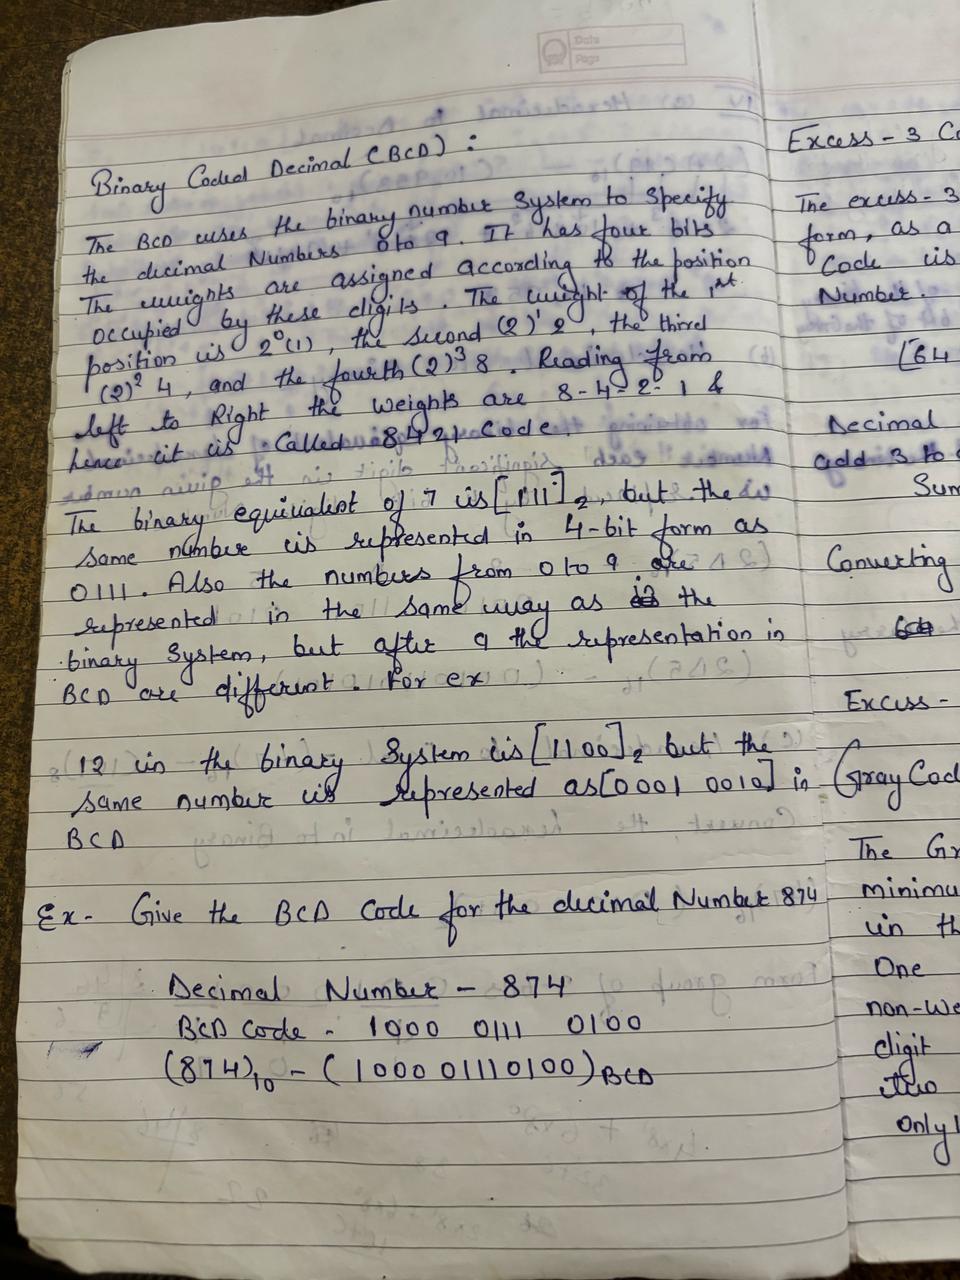 Date
Page
Binary Coded Decimal (BCD) :
The BCD uses the binary number System to Specify
the decimal Numbers 0 to 9. It has four bits
The weights are assigned according to the position
occupied by these digits. The weight of the 1st
position is 2⁰(1), the second (2)¹ 2, the third
(2)² 4, and the fourth (2)³ 8. Reading from
left to Right the weights are 8-4-2-1 &
hence it is Called 8421 Code.
The binary equivalent of 7 is [111]₂, but the
same number is represented in 4-bit form as
0111. Also the numbers from 0 to 9 are
represented in the same way as the
binary System, but after 9 the representation in
BCD are different. For ex
12 in the binary System is [1100]₂ but the
same number is represented as [0001 0010] in
BCD
Ex- Give the BCD Code for the decimal Number 874
Decimal Number - 874
BCD Code - 1000 0111 0100
(874)₁₀ - (100001110100)BCD
Excess-3 Co
The excess-3
form, as a
Code is
Number.
[64
Decimal
add 3 to
Sum
Converting
Excess-
Gray Cod
The Gr
minimu
in th
One
non-we
digit
two
Only 1